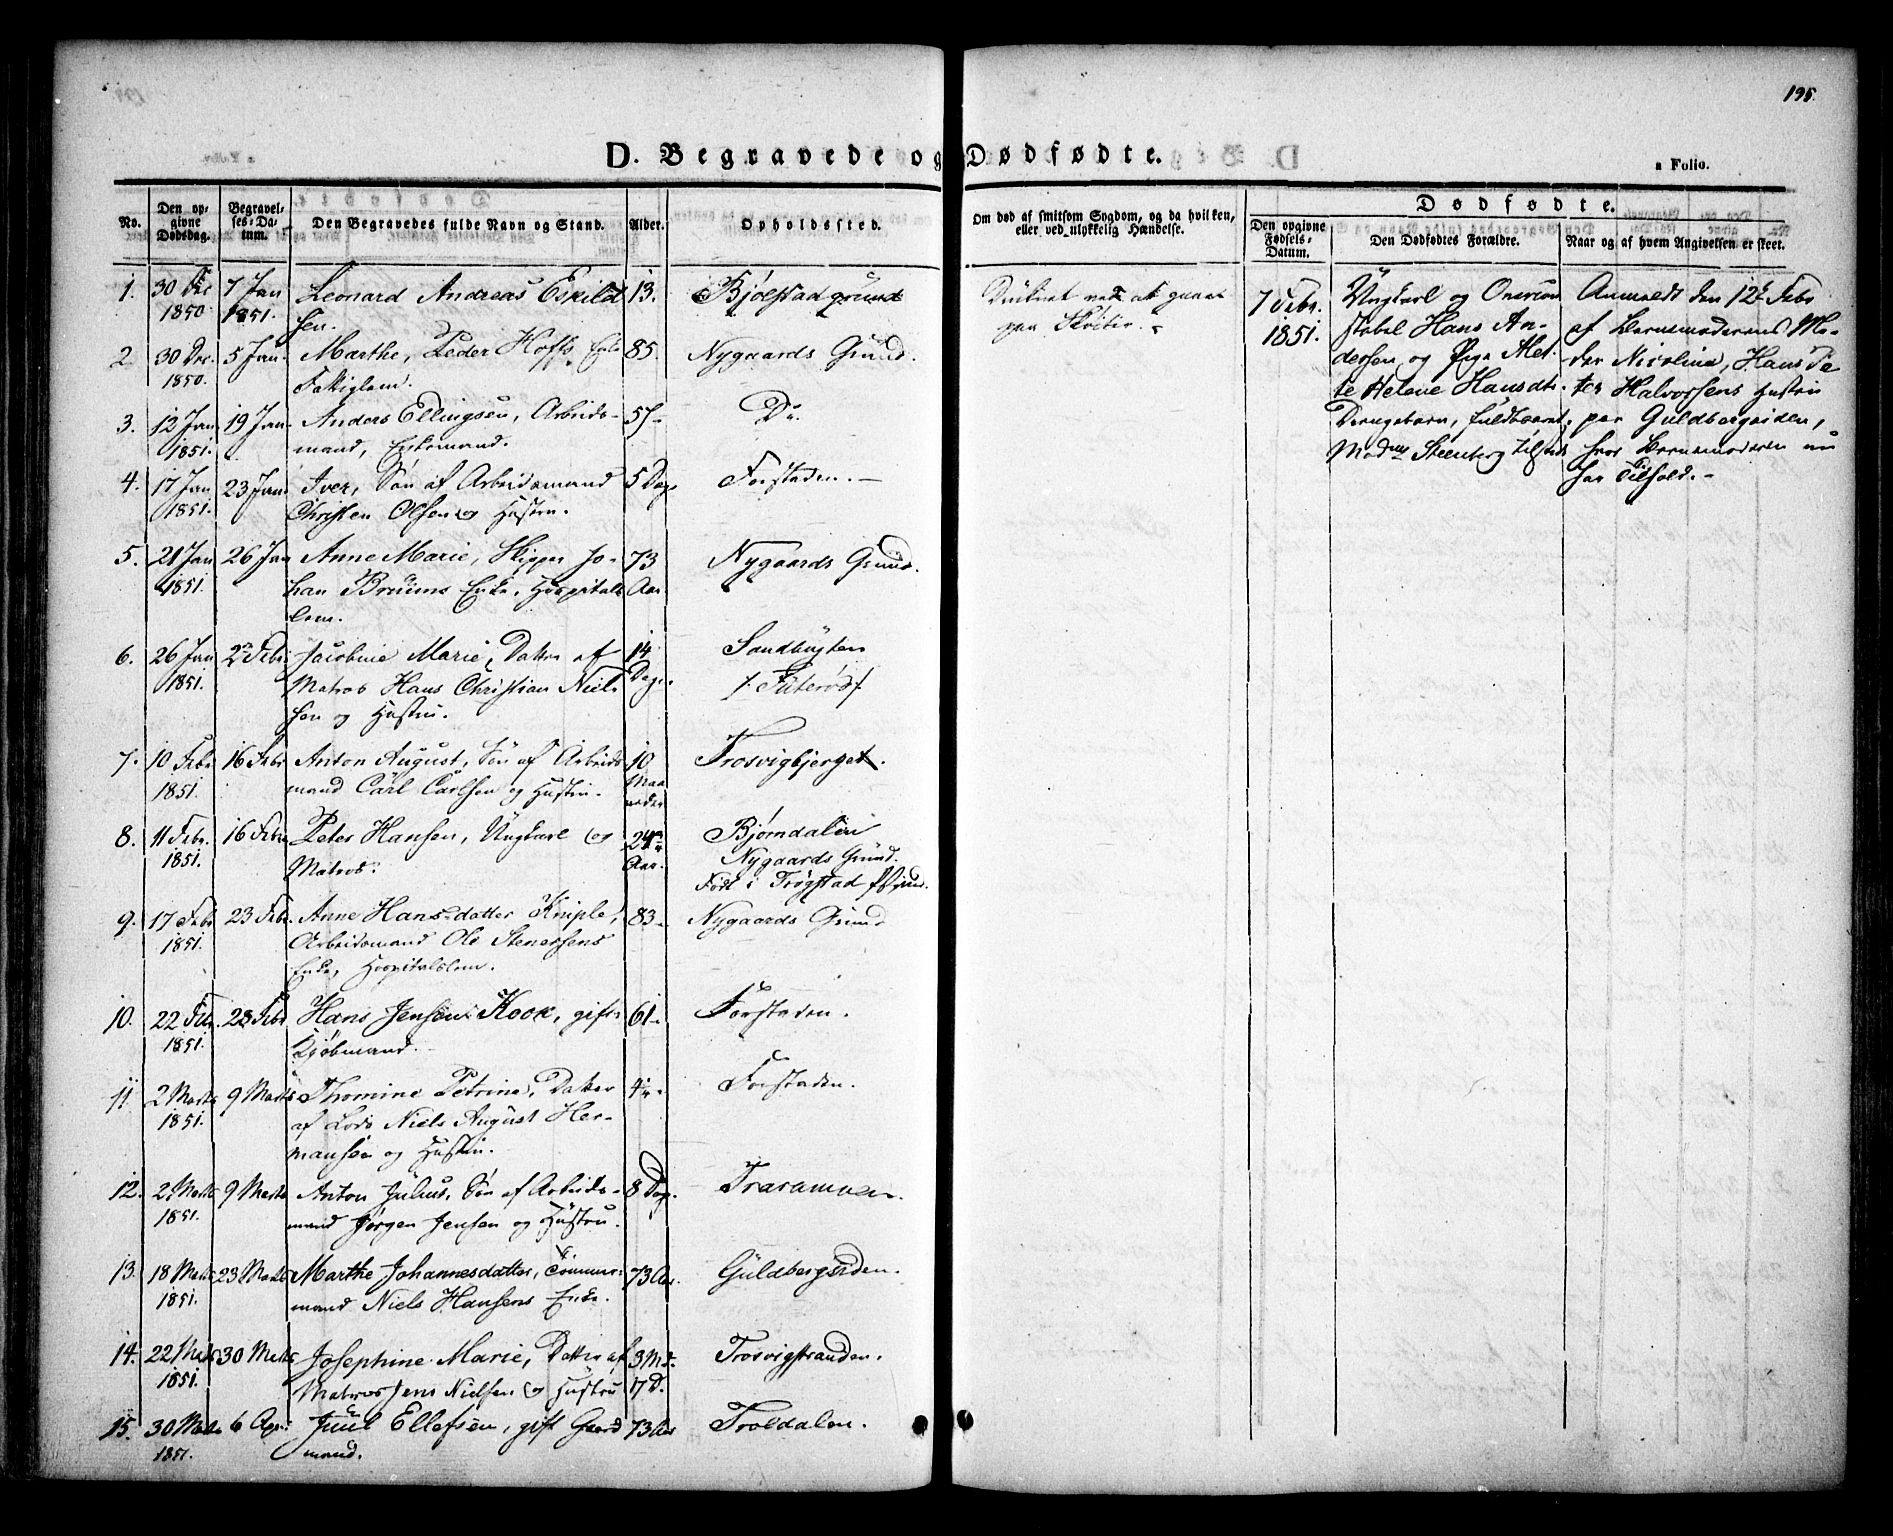 195.
D. Begravede og Dødfødte.
a Folio.
No.
Den op-
givne
Dødsdag.
Begravel-
ses-Da-
tum.
Den Begravedes fulde Navn og Stand.
Alder.
Opholdssted.
Om død af smitsom Sygdom, og da hvilken,
eller ved ulykkelig Hændelse.
Dødfødte.
Den opgivne
Fødsels-
Datum.
Den Dødfødtes Forældre.
Naar og af hvem Angivelsen er skeet.
1. 30 Dec 1850. 7 Jan 1851. Leonard Andreas Eskild 13. Bjølstad grund
sen.
2. 30 Dec. 1850. 5 Jan. Marthe, Peder Hoffs Enke 85. Nygaards Grund.
Fattiglem.
3. 12 Jan 1851. 19 Jan. Anders Ellingsen, Arbeids- Do.
mand, Enkemand.
4. 17 Jan 1851. 23 Jan. Iver, Søn af Arbeidsmand 5 Dage Forstaden.
Christen Olsen og Hustru.
5. 21 Jan 1851. 26 Jan Anne Marie, Skipper Jo- 73 Aar Nygaards Grund.
han Bruuns Enke, Hospitals
lem.
6. 26 Jan 1851. 2n Febr. Jacobine Marie, Datter af 14 Dage. Sandbugten
Matros Hans Christian Niel
sen og Hustru.
7. 10 Febr 1851. 16 Febr Anton August, Søn af Arbeids 10 Maaneder Trosvigbjerget.
mand Carl Carlsen og Hustru.
8. 11 Febr. 1851. 16 Febr Peter Hansen, Ungkarl og 24 Aar. Bjørndalen
Matros. Nygaards Grund.
Født i Trøgstad
9. 17 Febr 1851. 23 Febr. Anne Hansdatter Kniple, 83 Nygaards Grund
Arbeidsmand Ole Stenersens
Enke, Hospitalslem.
10. 22 Febr. 1851. 28 Febr Hans Jensen Kook, gift 61 Forstaden.
Kjøbmand.
11 2 Marts 1851. 9 Marts Thomine Petrine, Datter 4 Forstaden.
af Lods Niels August Her-
mansen og Hustru.
12. 2 Marts 1851. 9 Marts Anton Julius, Søn af Arbeids- 8 Dag. Traraamoen.
mand Jørgen Jensen og Hustru.
13. 18 Marts 1851. 23 Marts Marthe Johannesdatter, Tømmer- 73 Aar. Guldbergsiden.
mand Niels Hansens Enke.
14. 22 Marts 1851. 30 Marts Josephine Marie, Datter af 3 Md. 17 D. Trosvigstranden.
Matros Jens Nielsen og Hustru
15. 30 Marts 1851. 6 Apr. Juul Ellefsen, gift Gaard 73 Aar Troldalen.
mand.
Druknet ved at gaae
paa Skøiter.
7 Febr.
1851.
Ungkarl og Øvercon
stabel Hans An-
dersen og Pige Met-
te Helene Hansdtr.
Drengebarn, fuldbaaret,
Madm Steenberg tilsted
Anmeldt den 12te Febr
af Barnemoderens Mo-
der Nicolina, Hans Pe
ter Halvorsens Hustru
paa Guldbergsiden,
hvor Barnemoderen nu
har Tilhold.